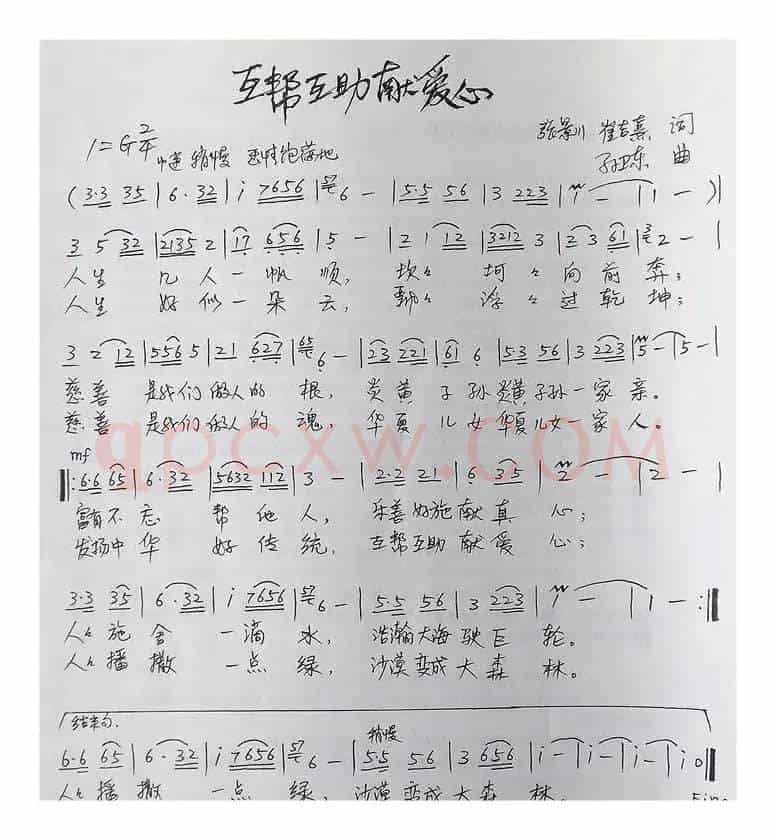 互帮互助献爱心
张景川 崔吉熹 词
1=G 2/4 中速 稍慢
孙卫东 曲
(3·3 35 | 6·32 | i 7656 | 57 6 — | 5·5 56 | 3 223 | 1 — | 1 — )|
3 5 32 | 2135 2 | 17 656 | 5 — | 2 1 12 | 3212 3 | 2 3 61 | 3 2 — |
人生 几人一帆顺, 坎々 坷々向前奔;
人生 好似一朵云, 飘々 浮々过乾坤;
3 2 12 | 556 5 | 21 627 | 65 6 — | 23 221 | 61 6 | 5·3 56 | 3 223 | 5 — | 5 — |
慈善 是我们做人的 根, 炎黄子孙炎黄子孙一家亲。
慈善 是我们做人的 魂, 华夏儿女华夏儿女一家人。
qpcxw.com
mf
‖: 6·6 65 | 6·32 | 5632 112 | 3 — | 2·2 21 | 6 35 | 2 — | 2 — |
富有不忘 帮他人, 乐善好施献真 心;
发扬中华 好传统, 互帮互助献爱 心;
3·3 35 | 6·32 | i 7656 | 57 6 — | 5·5 56 | 3 223 | 1 — | 1 — :‖
人々施舍 一滴水, 浩瀚大海驶巨 轮。
人々播撒 一点绿, 沙漠变成大森 林。
结束句.
稍慢
6·6 65 | 6·32 | i 7656 | 57 6 — | 5·5 56 | 3 656 | i — | i — | i — | i 0 ‖
人々播撒 一点绿, 沙漠变成大森 林.
Fine